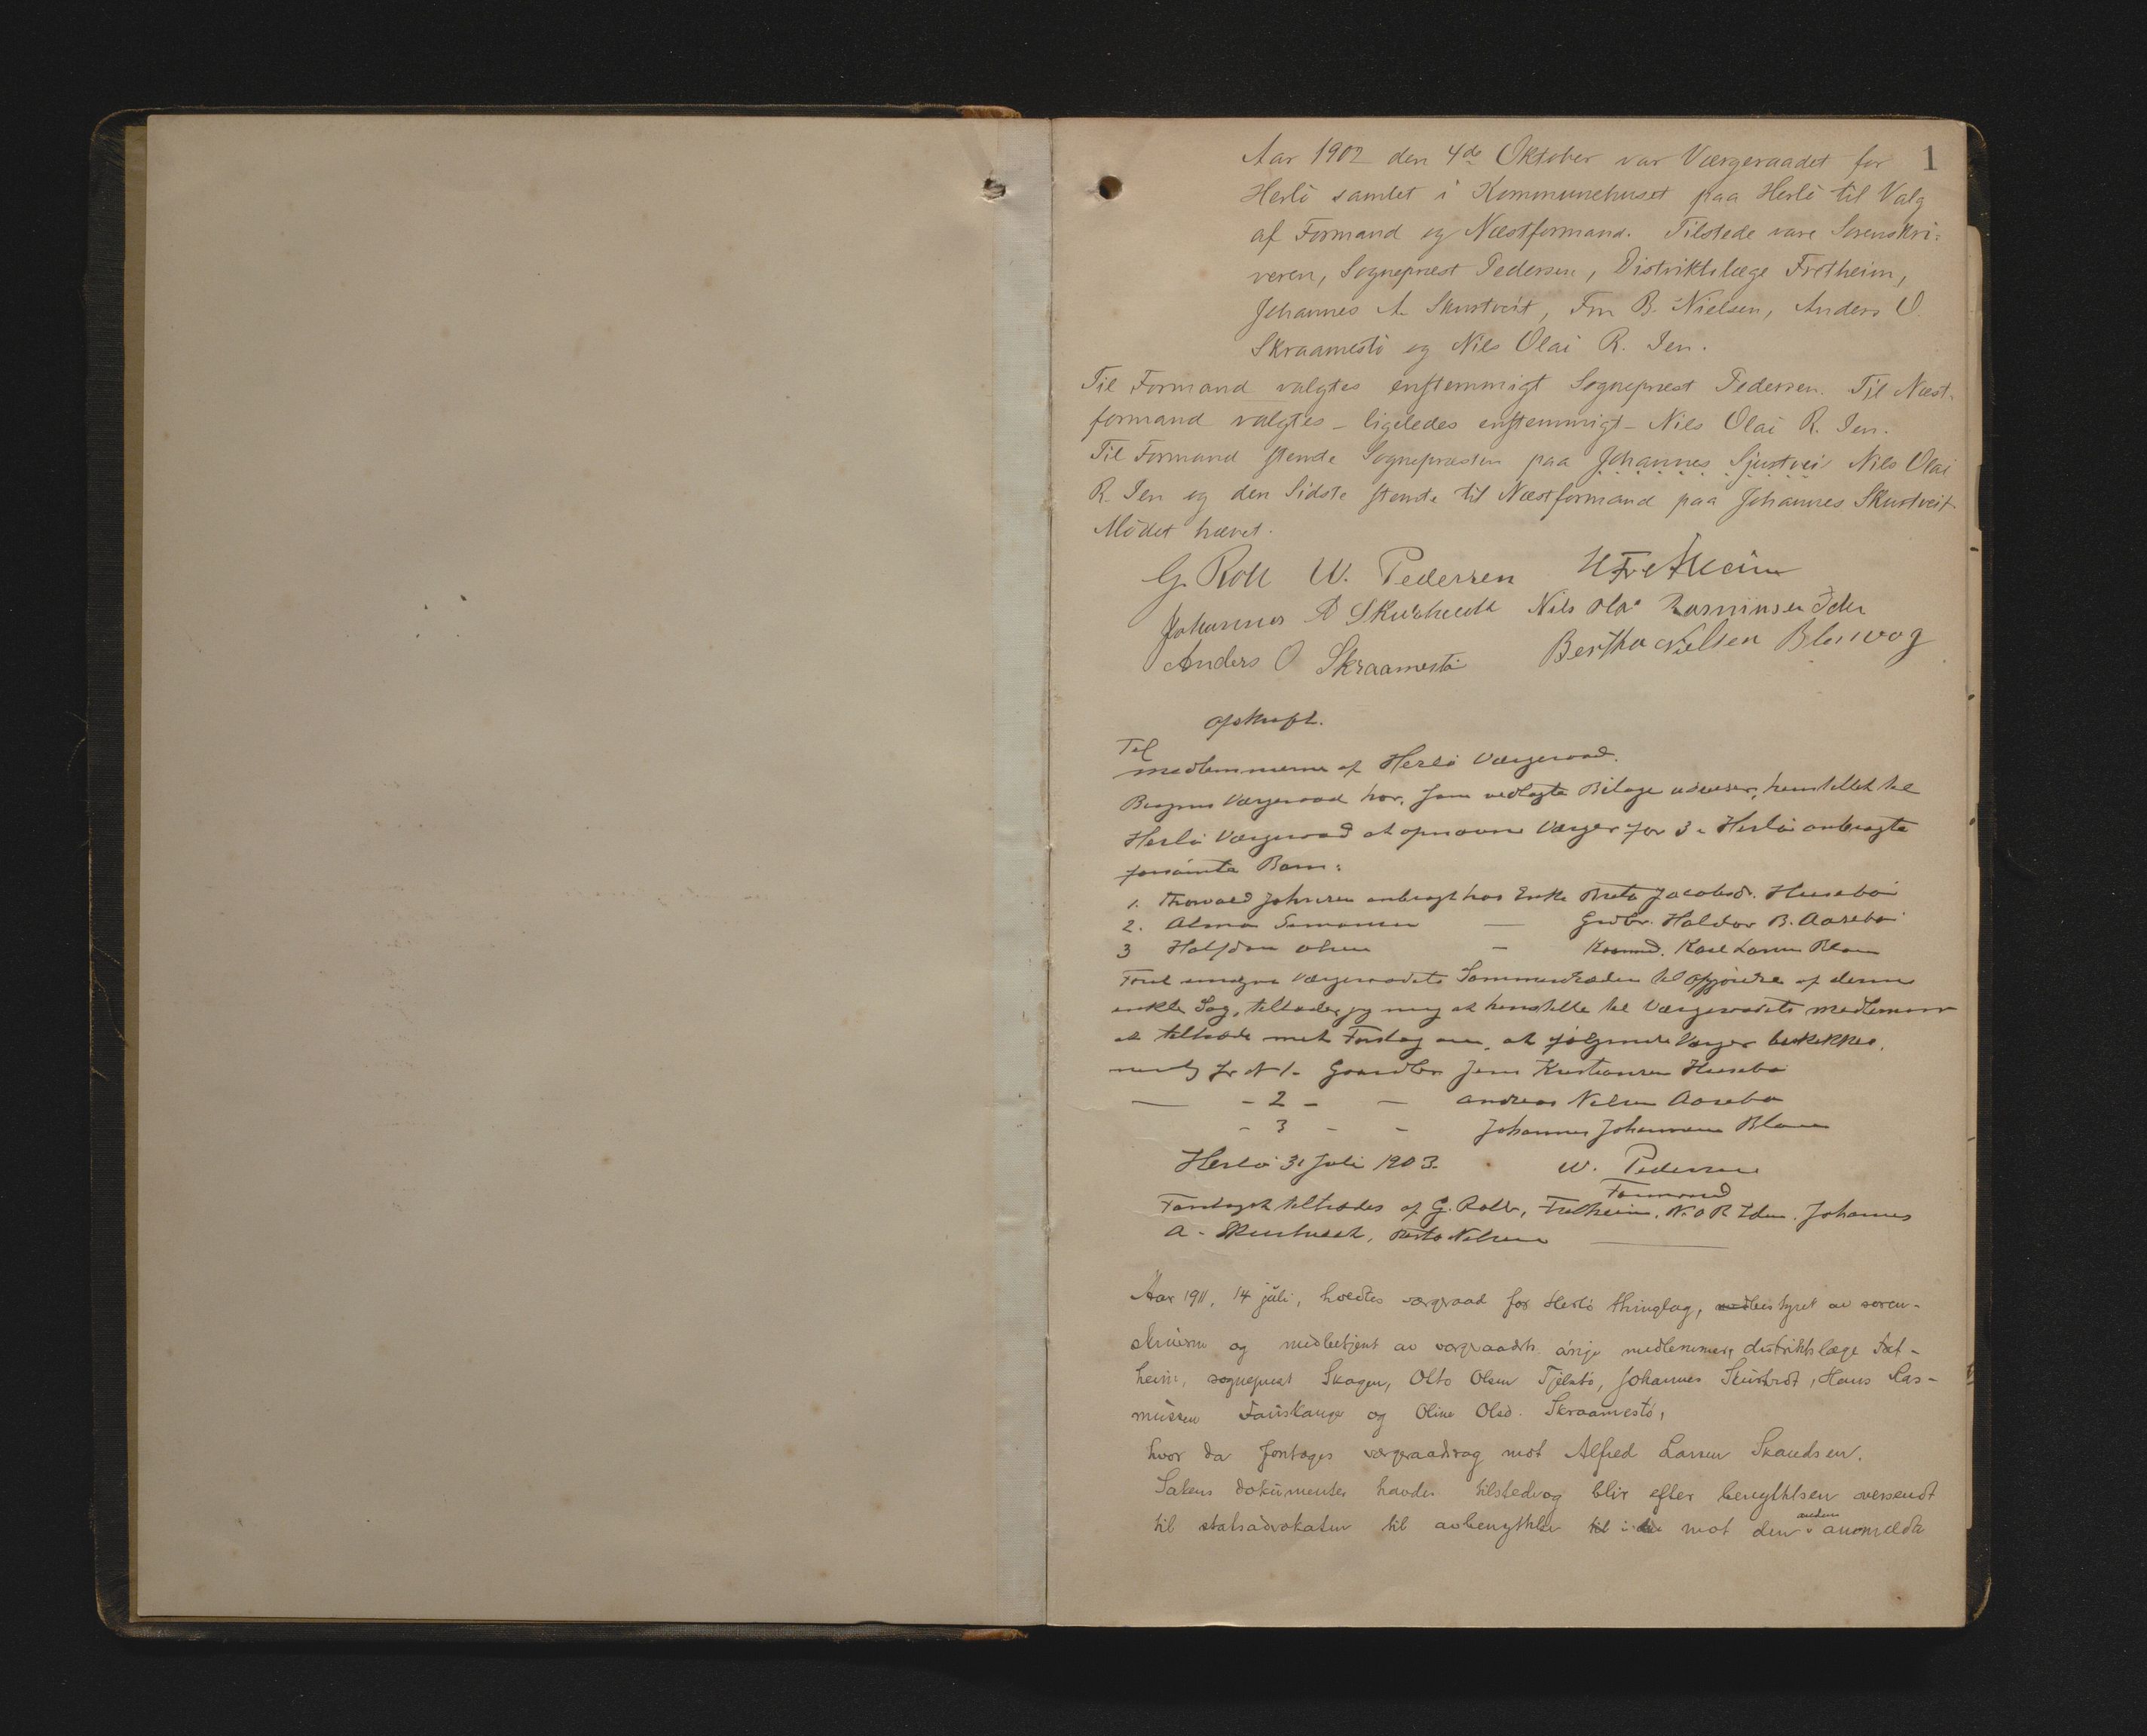 1
Aar 1902 den 4de Oktober var Værgeraadet for
Herlö samlet i Kommunehuset paa Herlö til Valg
af Formand og Næstformand. Tilstede vare Sorenskri-
veren, Sogneprest Pedersen, Distriktslæge Fretheim,
Johannes A. Skurtveit, Fru B. Nielsen, Anders O.
Skraamestö og Nils Olai R. Ien.
Til Formand valgtes enstemmigt Sogneprest Pedersen. Til Næst-
formand valgtes - ligeledes enstemmigt - Nils Olai R. Ien.
Til Formand stemte Sognepresten paa Johannes Nils Olai
R. Ien og den Sidste stemte til Næstformand paa Johannes Skurtveit
Mödet hævet.
G. Roll W. Pedersen H Fretheim
Johannes A Nils Olai Rasmussen Iden
Anders O Skraamestö Bertha Nielsen Blomvog
Afskrift.
Til
medlemmerne af Herlö Værgeraad.
Bergens Værgeraad har, som vedlagte Bilage udviser, henstillet til
Herlö Værgeraad at opnævne Værger for 3 i Herlö anbragte
forsömte Barn:
1. Thorvald Johnsen anbragt hos Enke Brita Jacobsd. Husebö
2. Alma Simonsen — Grdbr. Haldor B. Aasebö
3 Halfdan Olsen — Karl Larsen Blom
For at undgaa Værgeraadets Sammentræden til Afgjörelse af denne
enkle Sag, tillader jeg mig at henstille til Værgeraadets medlemmer
at tiltræde mit Forslag om, at fölgende Værger beskikkes,
nemlig for N 1 - Gaardbr. Jens Kristiansen Husebö
— - 2 - — Andreas Nilsen Aasebö
- 3 - - Johannes Johannesen Blom
Herlö 31 Juli 1903. W. Pedersen
Formand
Forslaget tiltrædes af G. Roll, Fretheim, N. O R Iden. Johannes
A. Skurtveit, Berta Nilsen
Aar 1911, 14 juli, holdtes vergeraad for Herlö thinglag, bestyret av soren-
skriveren og medbetjent av vergeraadets övrige medlemmer, distriktslæge Fret-
heim, sogneprest Skagen, Otto Olsen Tjeldstö, Johannes Skurtveit, Hans Ras-
mussen Fauskanger og Oline Olsd. Skraamestö,
hvor da foretoges vergeraadssag mot Alfred Larsen Skandsen.
Sakens dokumenter havdes tilstede og blir efter benyttelsen oversendt
til statsadvokaten til avbenyttelse mot den anden anmeldte